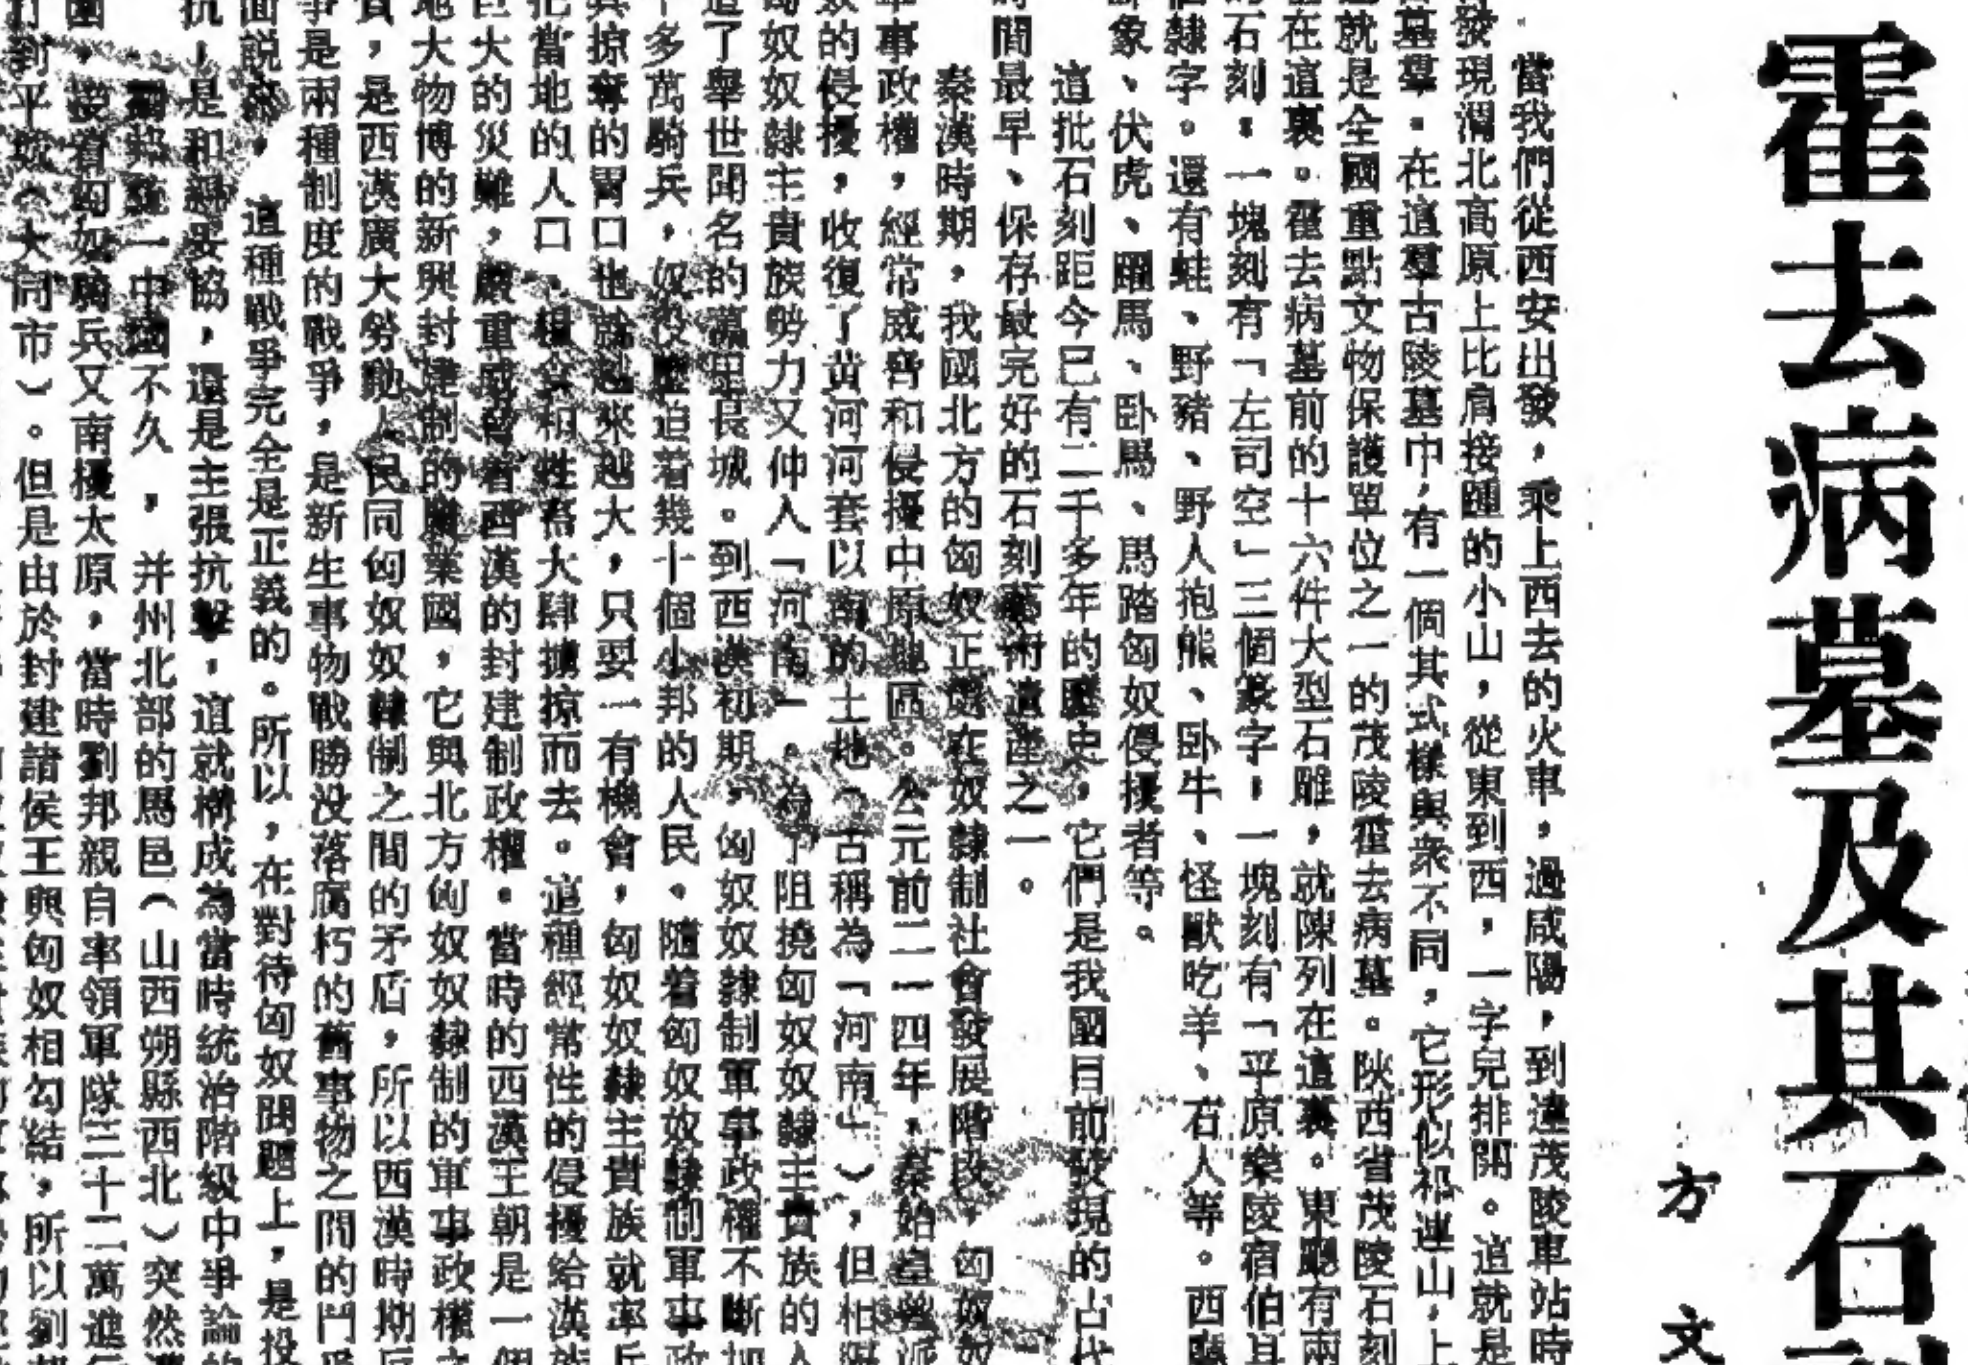 霍去病墓及其石
方 文
當我們從西安出發，乘上西去的火車，過咸陽，到達茂陵車站時
發現渭北高原上比肩接踵的小山，從東到西，一字兒排開。這就是
墓羣。在這羣古陵墓中，有一個其式樣與衆不同，它形似祁連山，上
就是全國重點文物保護單位之一的茂陵霍去病墓。陝西省茂陵石刻
在這裏。霍去病墓前的十六件大型石雕，就陳列在這裏。東廳有兩
石刻：一塊刻有「左司空」三個篆字，一塊刻有「平原樂陵宿伯
隸字。還有蛙、野豬、野人抱熊、卧牛、怪獸吃羊、石人等。西廳
象、伏虎、躍馬、卧馬、馬踏匈奴侵擾者等。
這批石刻距今已有二千多年的歷史，它們是我國目前發現的
時間最早、保存最完好的石刻藝術遺産之一。
秦漢時期，我國北方的匈奴正處在奴隸制社會發展階段，匈奴
軍事政權，經常威脅和侵擾中原地區。公元前二一四年，秦始皇
的侵擾，收復了黄河河套以南的土地（古稱為「河南」），但相
匈奴奴隸主貴族勢力又伸入「河南」。為了阻撓匈奴奴隸主貴族的
了舉世聞名的萬里長城。到西漢初期，匈奴奴隸制軍事政權不斷
多萬騎兵，奴役壓迫着幾十個小邦的人民。隨着匈奴奴隸制軍事政
掠奪的胃口也就越來越大，只要一有機會，匈奴奴隸主貴族就率
把當地的人口、糧食和牲畜大肆擄掠而去。這種經常性的侵擾給漢族
巨大的災難，嚴重威脅着西漢的封建制政權。當時的西漢王朝是一個
地大物博的新興封建制的農業國，它與北方匈奴奴隸制的軍事政權之
，是西漢廣大勞動人民同匈奴奴隸制之間的矛盾，所以西漢時期
爭是兩種制度的戰爭，是新生事物戰勝没落腐朽的舊事物之間的鬥
面説來，這種戰爭完全是正義的。所以，在對待匈奴問題上，是投
抗，是和親妥協，還是主張抗擊，這就構成為當時統治階級中爭論的
劉邦統一中國不久，并州北部的馬邑（山西朔縣西北）突然
，接着匈奴騎兵又南擾太原，當時劉邦親自率領軍隊三十二萬進
到平城（大同市）。但是由於封建諸侯王與匈奴相勾結，所以劉